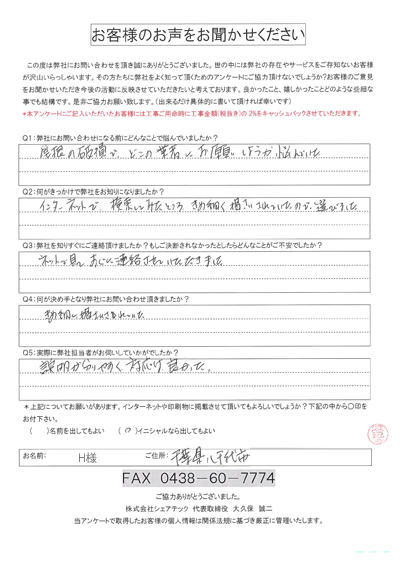 お客様のお声をお聞かせください
この度は弊社にお問い合わせを頂き誠にありがとうございました。世の中には弊社の存在やサービスをご存知ないお客様
が沢山いらっしゃいます。その方たちに弊社をよく知って頂くためのアンケートにご協力頂けないでしょうか?お客様のご意見
をお聞かせいただき今後の活動に反映させていただきたいと考えております。良かったこと、嬉しかったことどのような些細な
事でも結構です。是非ご協力お願い致します。（出来るだけ具体的に書いて頂ければ幸いです）
*本アンケートにご記入いただいたお客様には工事ご用命時に工事金額(税抜き)の2%をキャッシュバックさせていただきます。
Q1:弊社にお問い合わせになる前にどんなことで悩んでいましたか?
屋根の破損で、どこの業者にお願いしようか悩んでいた
Q2:何がきっかけで弊社をお知りになりましたか?
インターネットで検索してみたところ きめ細く掲さいされていたので、選びました
Q3:弊社を知りすぐにご連絡頂けましたか?もしご決断されなかったとしたらどんなことがご不安でしたか?
ネットで見て、すぐに連絡させていただきました
Q4:何が決め手となり弊社にお問い合わせ頂きましたか?
きめ細い掲さいされていた
Q5:実際に弊社担当者がお伺いしていかがでしたか?
説明が分りやすく対応は良かった。
*上記についてお願いがあります。インターネットや印刷物に掲載させて頂いてもよろしいでしょうか?下記の中から〇印を
お付下さい。
( )名前を出してもよい (〇)イニシャルなら出してもよい
お名前: H様 ご住所: 千葉県八千代市
FAX 0438-60-7774
ご協力ありがとうございました。
株式会社シェアテック 代表取締役 大久保 誠二
当アンケートで取得したお客様の個人情報は関係法規に基づき厳正に管理いたします。